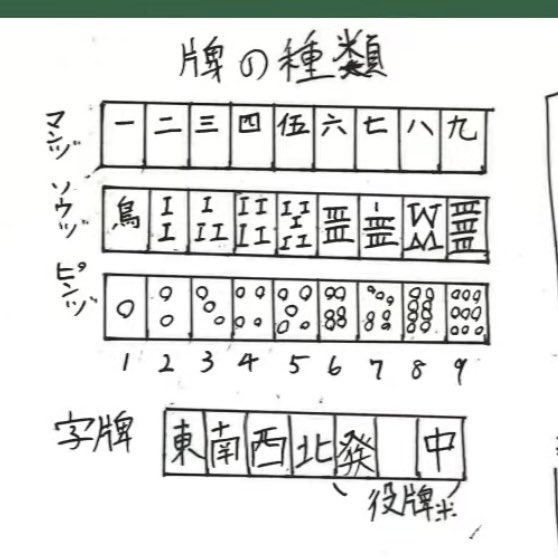 牌の種類
マンヅ 一 二 三 四 伍 六 七 八 九
ソウヅ 鳥
ピンヅ
1 2 3 4 5 6 7 8 9
字牌 東 南 西 北 發 中
役牌※